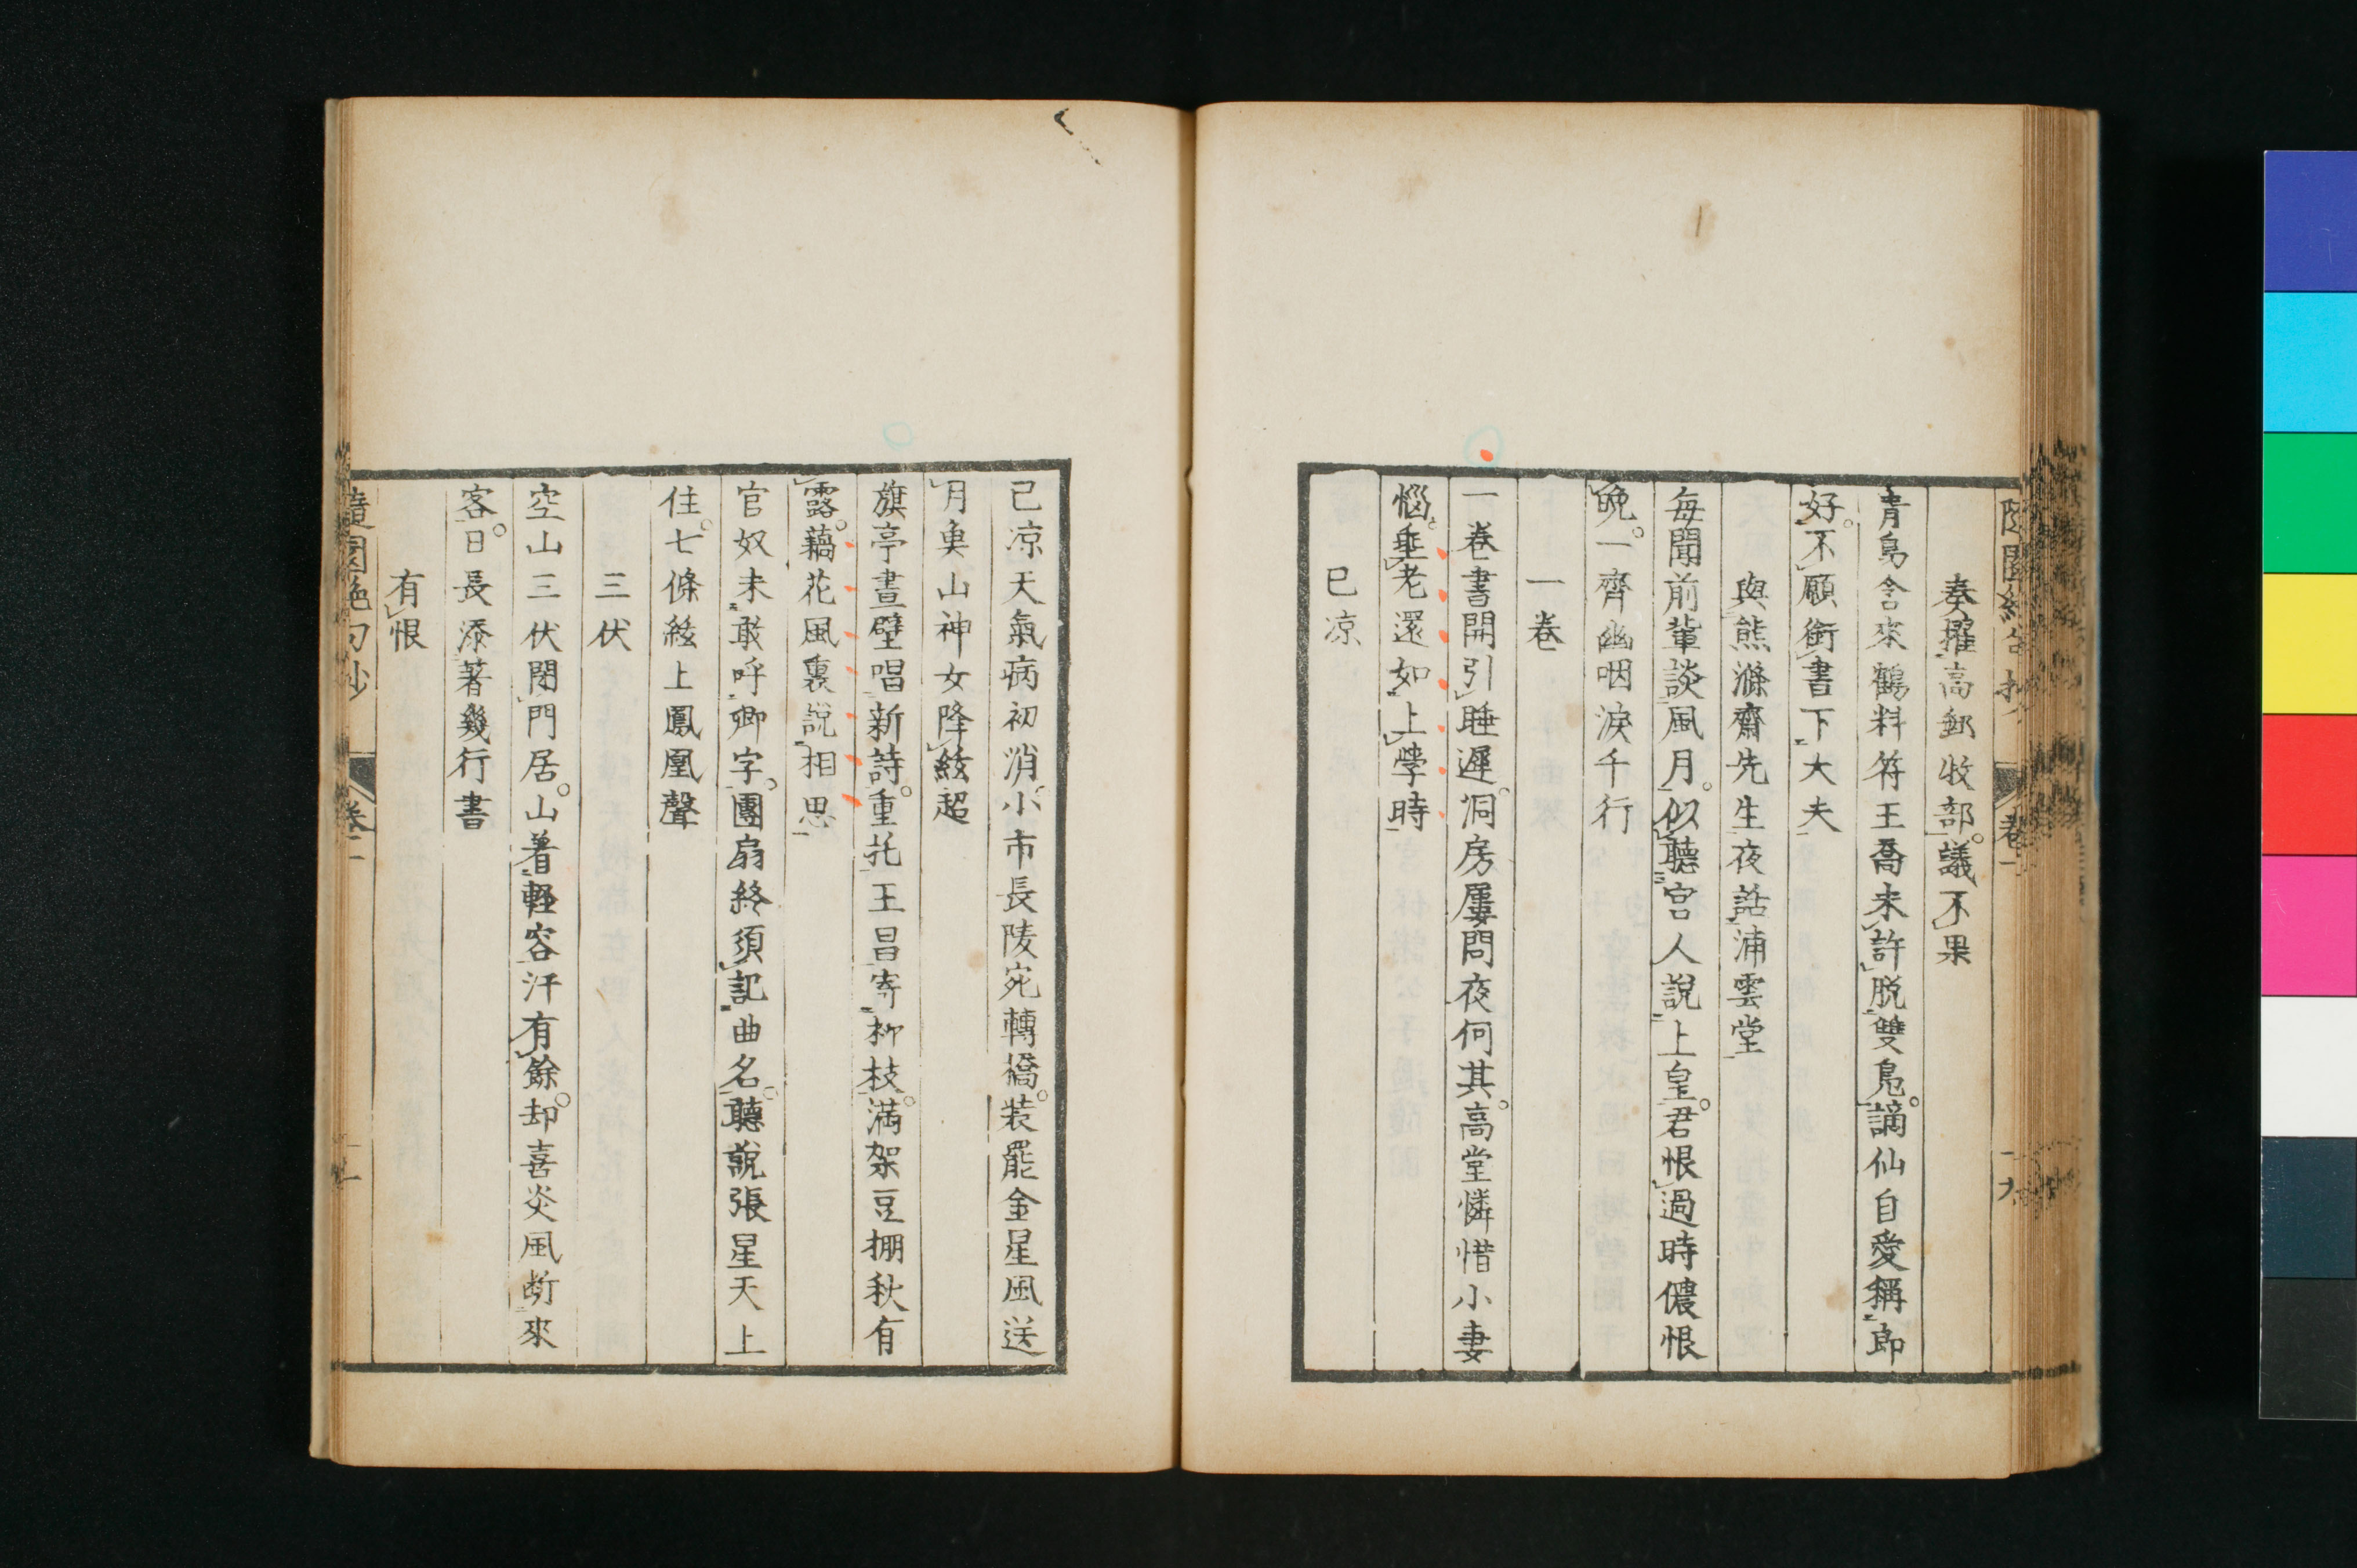 奏擢高郵牧部議不果
青鳥含來鶴料符王喬未許脱雙鳬謫仙自愛稱郎
好不願銜書下大夫
與熊滌齋先生夜話浦雲堂
每聞前輩談風月似聽宮人說上皇君恨過時儂恨
晩一齊幽咽淚千行
一卷
一卷書開引睡遲洞房屢問夜何其高堂憐惜小妻
惱垂老還如上學時
已凉
已凉天氣病初消小市長陵宛轉橋装罷金星風送
月奧山神女降絃超
旗亭畫壁唱新詩重托王昌寄柳枝滿架豆棚秋有
露藕花風裏說相思
官奴未敢呼卿字團扇終須記曲名聽說張星天上
住七條絃上鳳凰聲
三伏
空山三伏閉門居山著輕容汗有餘却喜炎風断來
客日長添著幾行書
有恨
隨園絶句抄 卷二